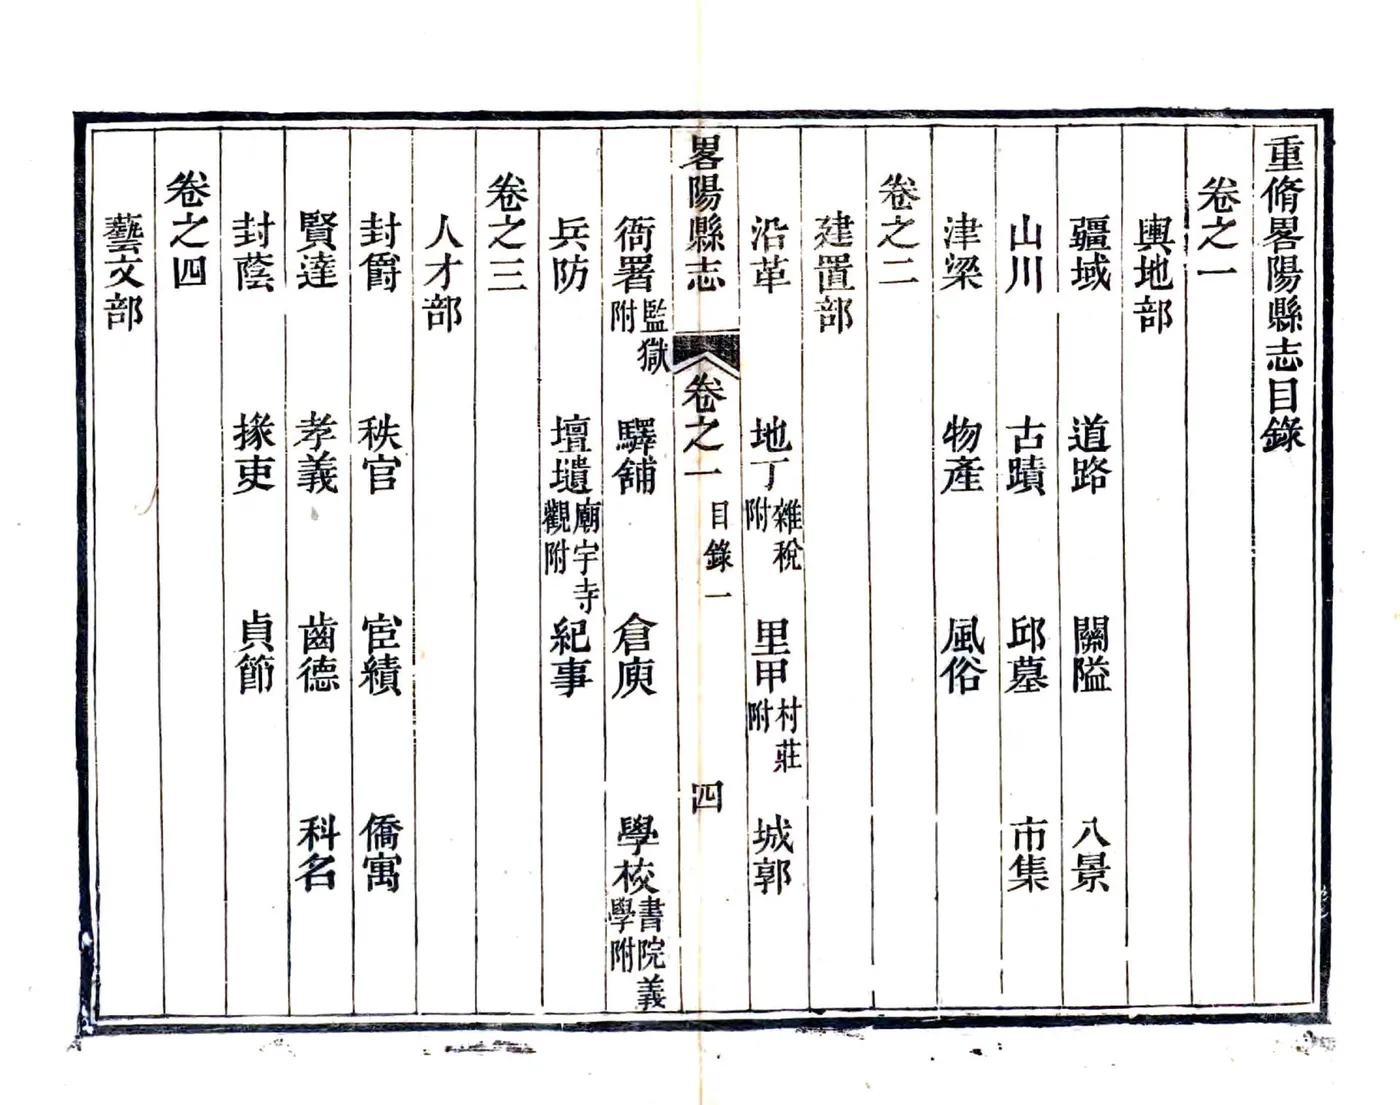 重脩畧陽縣志目錄
卷之一
輿地部
疆域 道路 關隘 八景
山川 古蹟 邱墓 市集
津梁 物產 風俗
卷之二
建置部
沿革 地丁雜稅附 里甲村莊附 城郭
畧陽縣志 卷之一 目錄一 四
衙署監獄附 驛舖 倉庾 學校書院義學附
兵防 壇壝廟宇寺觀附 紀事
卷之三
人才部
封爵 秩官 宦績 僑寓
賢達 孝義 齒德 科名
封蔭 掾吏 貞節
卷之四
藝文部